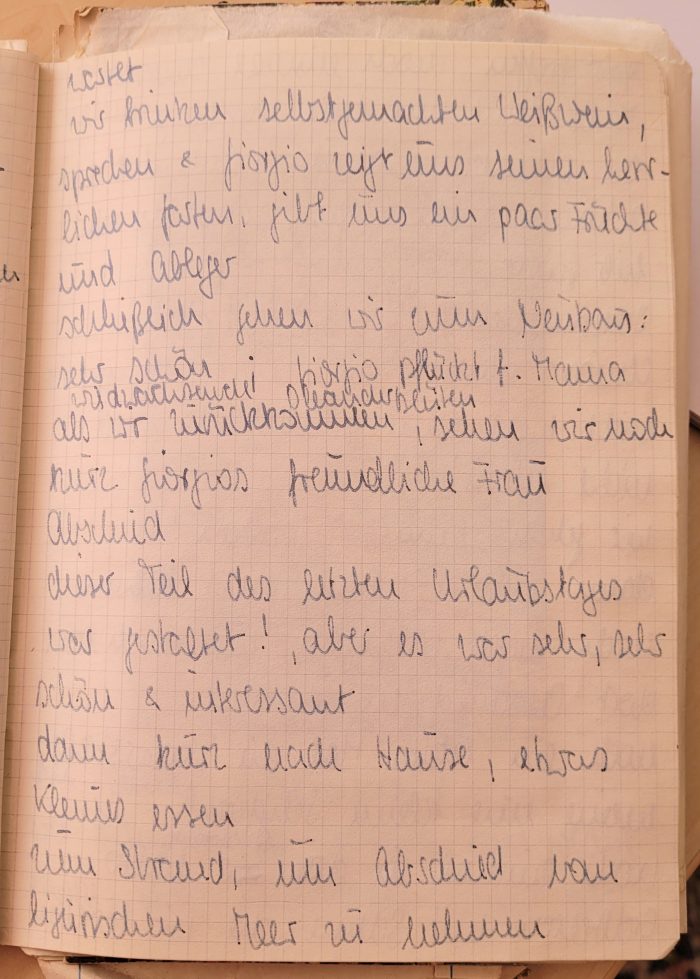 wartet
wir trinken selbstgemachten Weißwein,
sprechen & Giorgio zeigt uns seinen herr-
lichen Garten, gibt uns ein paar Früchte
und Ableger
schließlich gehen wir zum Neubau:
sehr schön ; Giorgio pflückt f. Mama
wildwachsende Oleanderblüten
als wir zurückkommen, sehen wir noch
kurz Giorgios freundliche Frau
Abschied
dieser Teil des letzten Urlaubstages
war gestaltet!, aber es war sehr, sehr
schön & interessant
dann kurz nach Hause, etwas
Kleines essen
zum Strand, um Abschied vom
ligurischen Meer zu nehmen